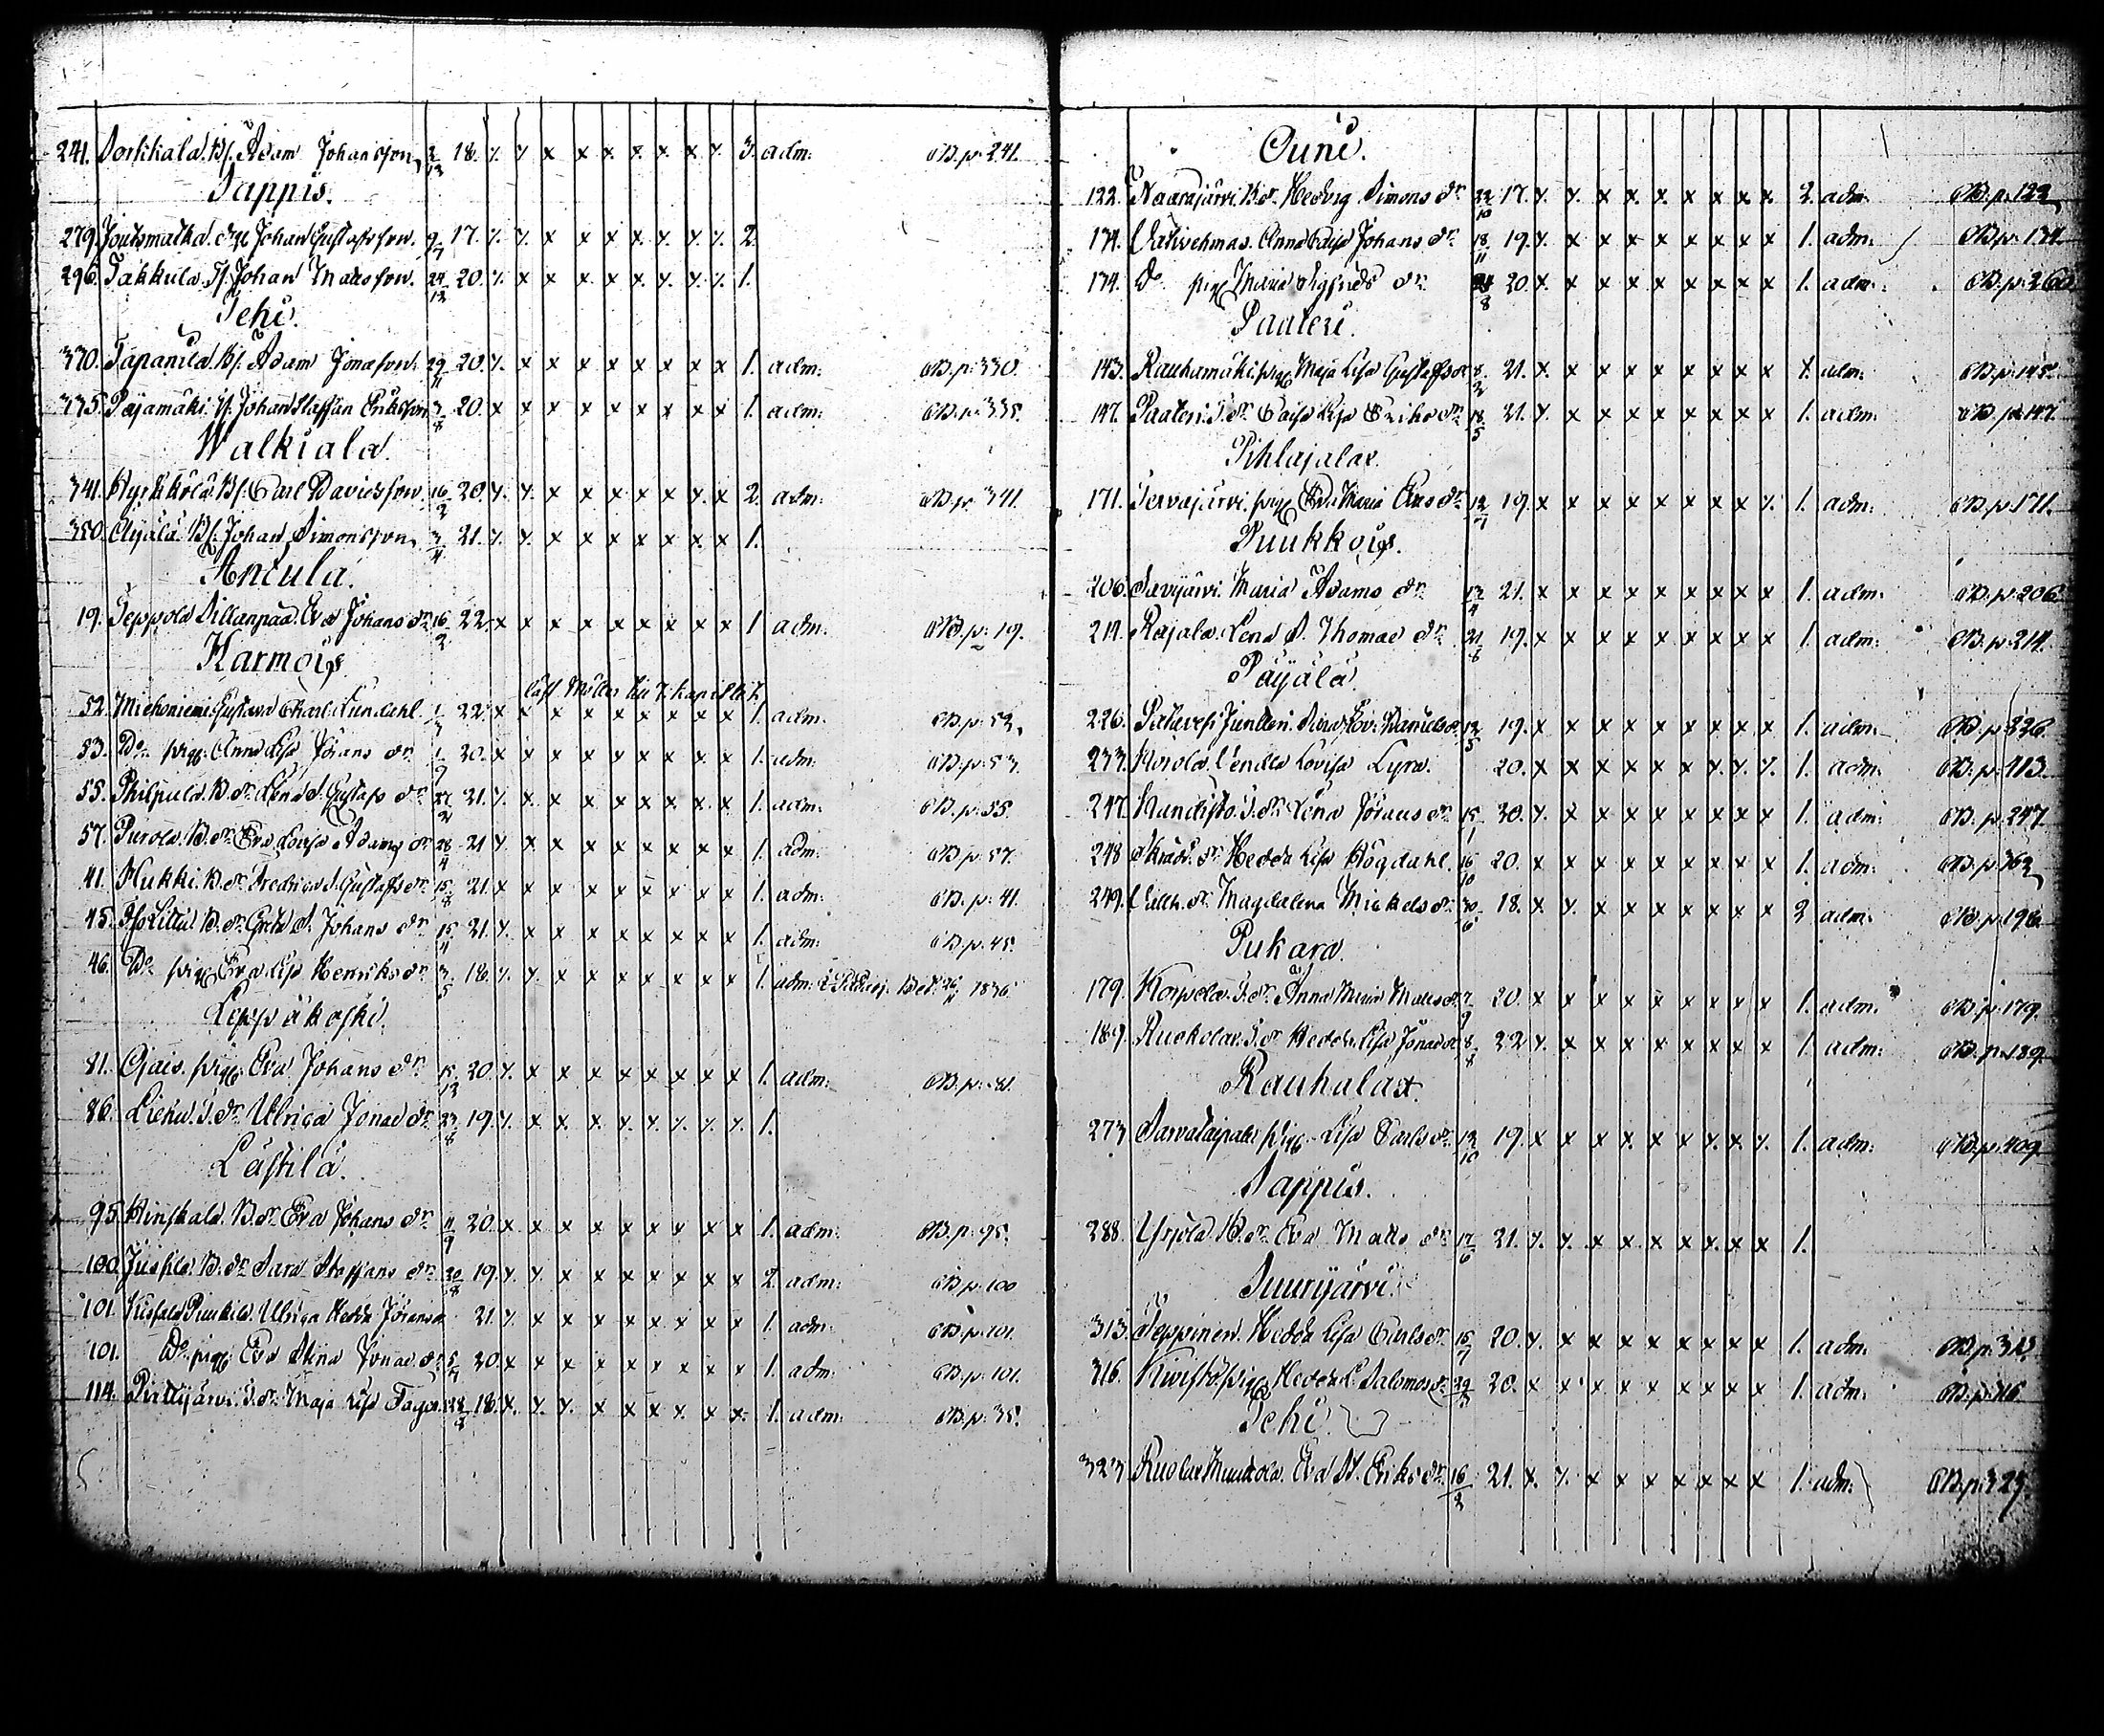 241. Bs. Adam Johansson 18. x x x x x x x x x 3. adm: CB. p: 241.
Sappis.
279. Joutsmatka. Johan Gustafsson. 17. x x x x x x x x x 2.
296. Takkula. Johan Matsson. 24/12 20. x x x x x x x x x 1.
Tehi.
330. Tapanila. Bs. Adam Jonasson. 29/11 20. x x x x x x x x x 1. adm: CB. p: 330.
335. Päjämäki. Johan Staffan Eriksson 3/8 20. x x x x x x x x x 1. adm: CB. p: 335.
Walkiala.
341. Hyrkkölä. Bs. Carl Davidsson. 16/2 20. x x x x x x x x x 2. adm: CB. p: 341.
350. Äijälä. Bs. Johan Simonsson 3/4 21. x x x x x x x x x 1.
Aniula.
19. Seppola Sillanpää. Eva Johans dr. 16/2 22. x x x x x x x x x 1. adm: CB. p: 19.
Karmois.
till 7. kapitlet
52. Miehoniemi. Gustava Karl. Lundahl. 22. x x x x x x x x x 1. adm: CB. p: 52.
53. Do. pig. Anna Lisa Jörans dr. 1/9 20. x x x x x x x x x 1. adm: CB. p: 53.
55. Philpula. B. dr. Lena S. Gustafs dr. 27/2 21. x x x x x x x x x 1. adm: CB. p: 55.
57. Purola. B. dr. Eva Lovisa Adams dr. 28/4 21. x x x x x x x x x 1. adm: CB. p: 57.
41. Hukki. B. dr. Fredrica S. Gustafs dr. 15/8 21. x x x x x x x x x 1. adm: CB. p: 41.
45. B. dr. Greta S. Johans dr. 15/11 21. x x x x x x x x x 1. adm: CB. p: 45.
46. Do. pig. Eva Lisa Henriks dr. 3/5 18. x x x x x x x x x 1. adm: 1836.
Leppäkoski.
81. Ojais. pig. Eva Johans dr. 15/12 20. x x x x x x x x x 1. adm: CB. p: 81.
86. Liehu. T. dr. Ulrica Jonae dr. 23/8 19. x x x x x x x x x 1.
Lästilä.
95. B. dr. Eva Johans dr. 11/9 20. x x x x x x x x x 1. adm: CB. p: 95.
100. Jussila. B. dr. Sara Staffans dr. 20/8 19. x x x x x x x x x 2. adm: CB. p: 100
101. Ulrica Hedda Jörans dr. 21. x x x x x x x x x 1. adm: CB. p: 101.
101. Do. pig. Eva Stina Jonae dr. 20. x x x x x x x x x 1. adm: CB. p: 101.
114. Pirttijärvi. T. dr. Maja Lisa 18. x x x x x x x x x 1. adm: CB. p: 35.
Ouni.
122. Naarajärvi. B. dr. Hedvig Simons dr. 22/10 17. x x x x x x x x x 2. adm: CB. p: 122.
134. Vativehmas. Anna Caisa Johans dr. 18/11 19. x x x x x x x x x 1. adm: CB. p: 134.
134. Do. pig. Maria Sigfrids dr. 20. x x x x x x x x x 1. adm: CB. p: 260
Paateri.
143. Rauhamäki. pig. Maja Lisa Gustafs dr. 8/2 21. x x x x x x x x x 1. adm: CB. p: 145.
147. Paateri. T. dr. Caisa Lisa Eriks dr. 18/5 21. x x x x x x x x x 1. adm: CB. p: 147.
Pihlajalax.
171. Tervajärvi. pig. Eva Maria dr. 12/7 19. x x x x x x x x x 1. adm: CB. p: 171.
Puukkois.
206. Savijärvi. Maria Adams dr. 13/4 21. x x x x x x x x x 1. adm: CB. p: 206.
214. Rajala. Lena S. Thomae dr. 21/8 19. x x x x x x x x x 1. adm: CB. p: 214.
Päijälä.
226. Sara Lov. Daniels dr. 12/5 19. x x x x x x x x x 1. adm: CB. p: 226.
233. Vendla Lovisa Lyra. 20. x x x x x x x x x 1. adm: CB. p: 413.
247. T. dr. Lena Jöraus dr. 15/1 20. x x x x x x x x x 1. adm: CB. p: 247.
248 Skräd. dr. Hedda Lisa Högdahl. 16/10 20. x x x x x x x x x 1. adm: CB. p: 362.
249. dr. Magdalena Mickels dr. 30/6 18. x x x x x x x x x 2 adm: CB. p: 196.
Pukara.
179. Korpela. T. dr. Anna Maria Matts dr. 7/9 20. x x x x x x x x x 1. adm: CB. p: 179.
189. Ruokola. T. dr. Hedda Lisa Jonae dr. 8/8 22 x x x x x x x x x 1. adm: CB. p: 189.
Rauhalax.
273 pig. Lisa Carls dr. 12/10 19. x x x x x x x x x 1. adm: CB. p: 409.
Sappis.
288. Yrjölä. B. dr. Eva Matts dr. 17/6 21. x x x x x x x x x 1.
Suurijärvi.
313. Seppinen. Hedda Lisa Carls dr. 15/7 20. x x x x x x x x x 1. adm: CB. p: 313.
316. Kivistö. pig. Hedda L. Salomos dr. 20. x x x x x x x x x 1. adm:
Tehi.
323. Eva St. Eriks dr. 16/2 21. x x x x x x x x x 1. adm: CB. p: 329.